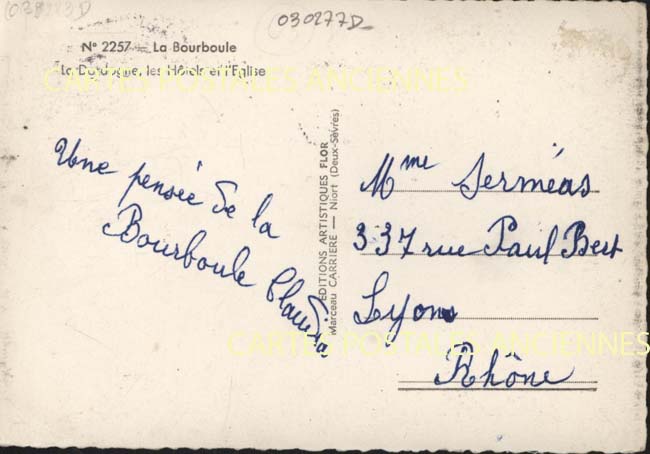 030277D
N° 2257 — La Bourboule
La Dordogne, les Hôtels et l'Eglise
CARTES POSTALES ANCIENNES
Une pensée de la
Bourboule Claudia
EDITIONS ARTISTIQUES FLOR
Marceau CARRIERE — Niort (Deux-Sèvres)
Mme Serméas
337 rue Paul Bert
Lyon
Rhône
CARTES POSTALES ANCIENNES